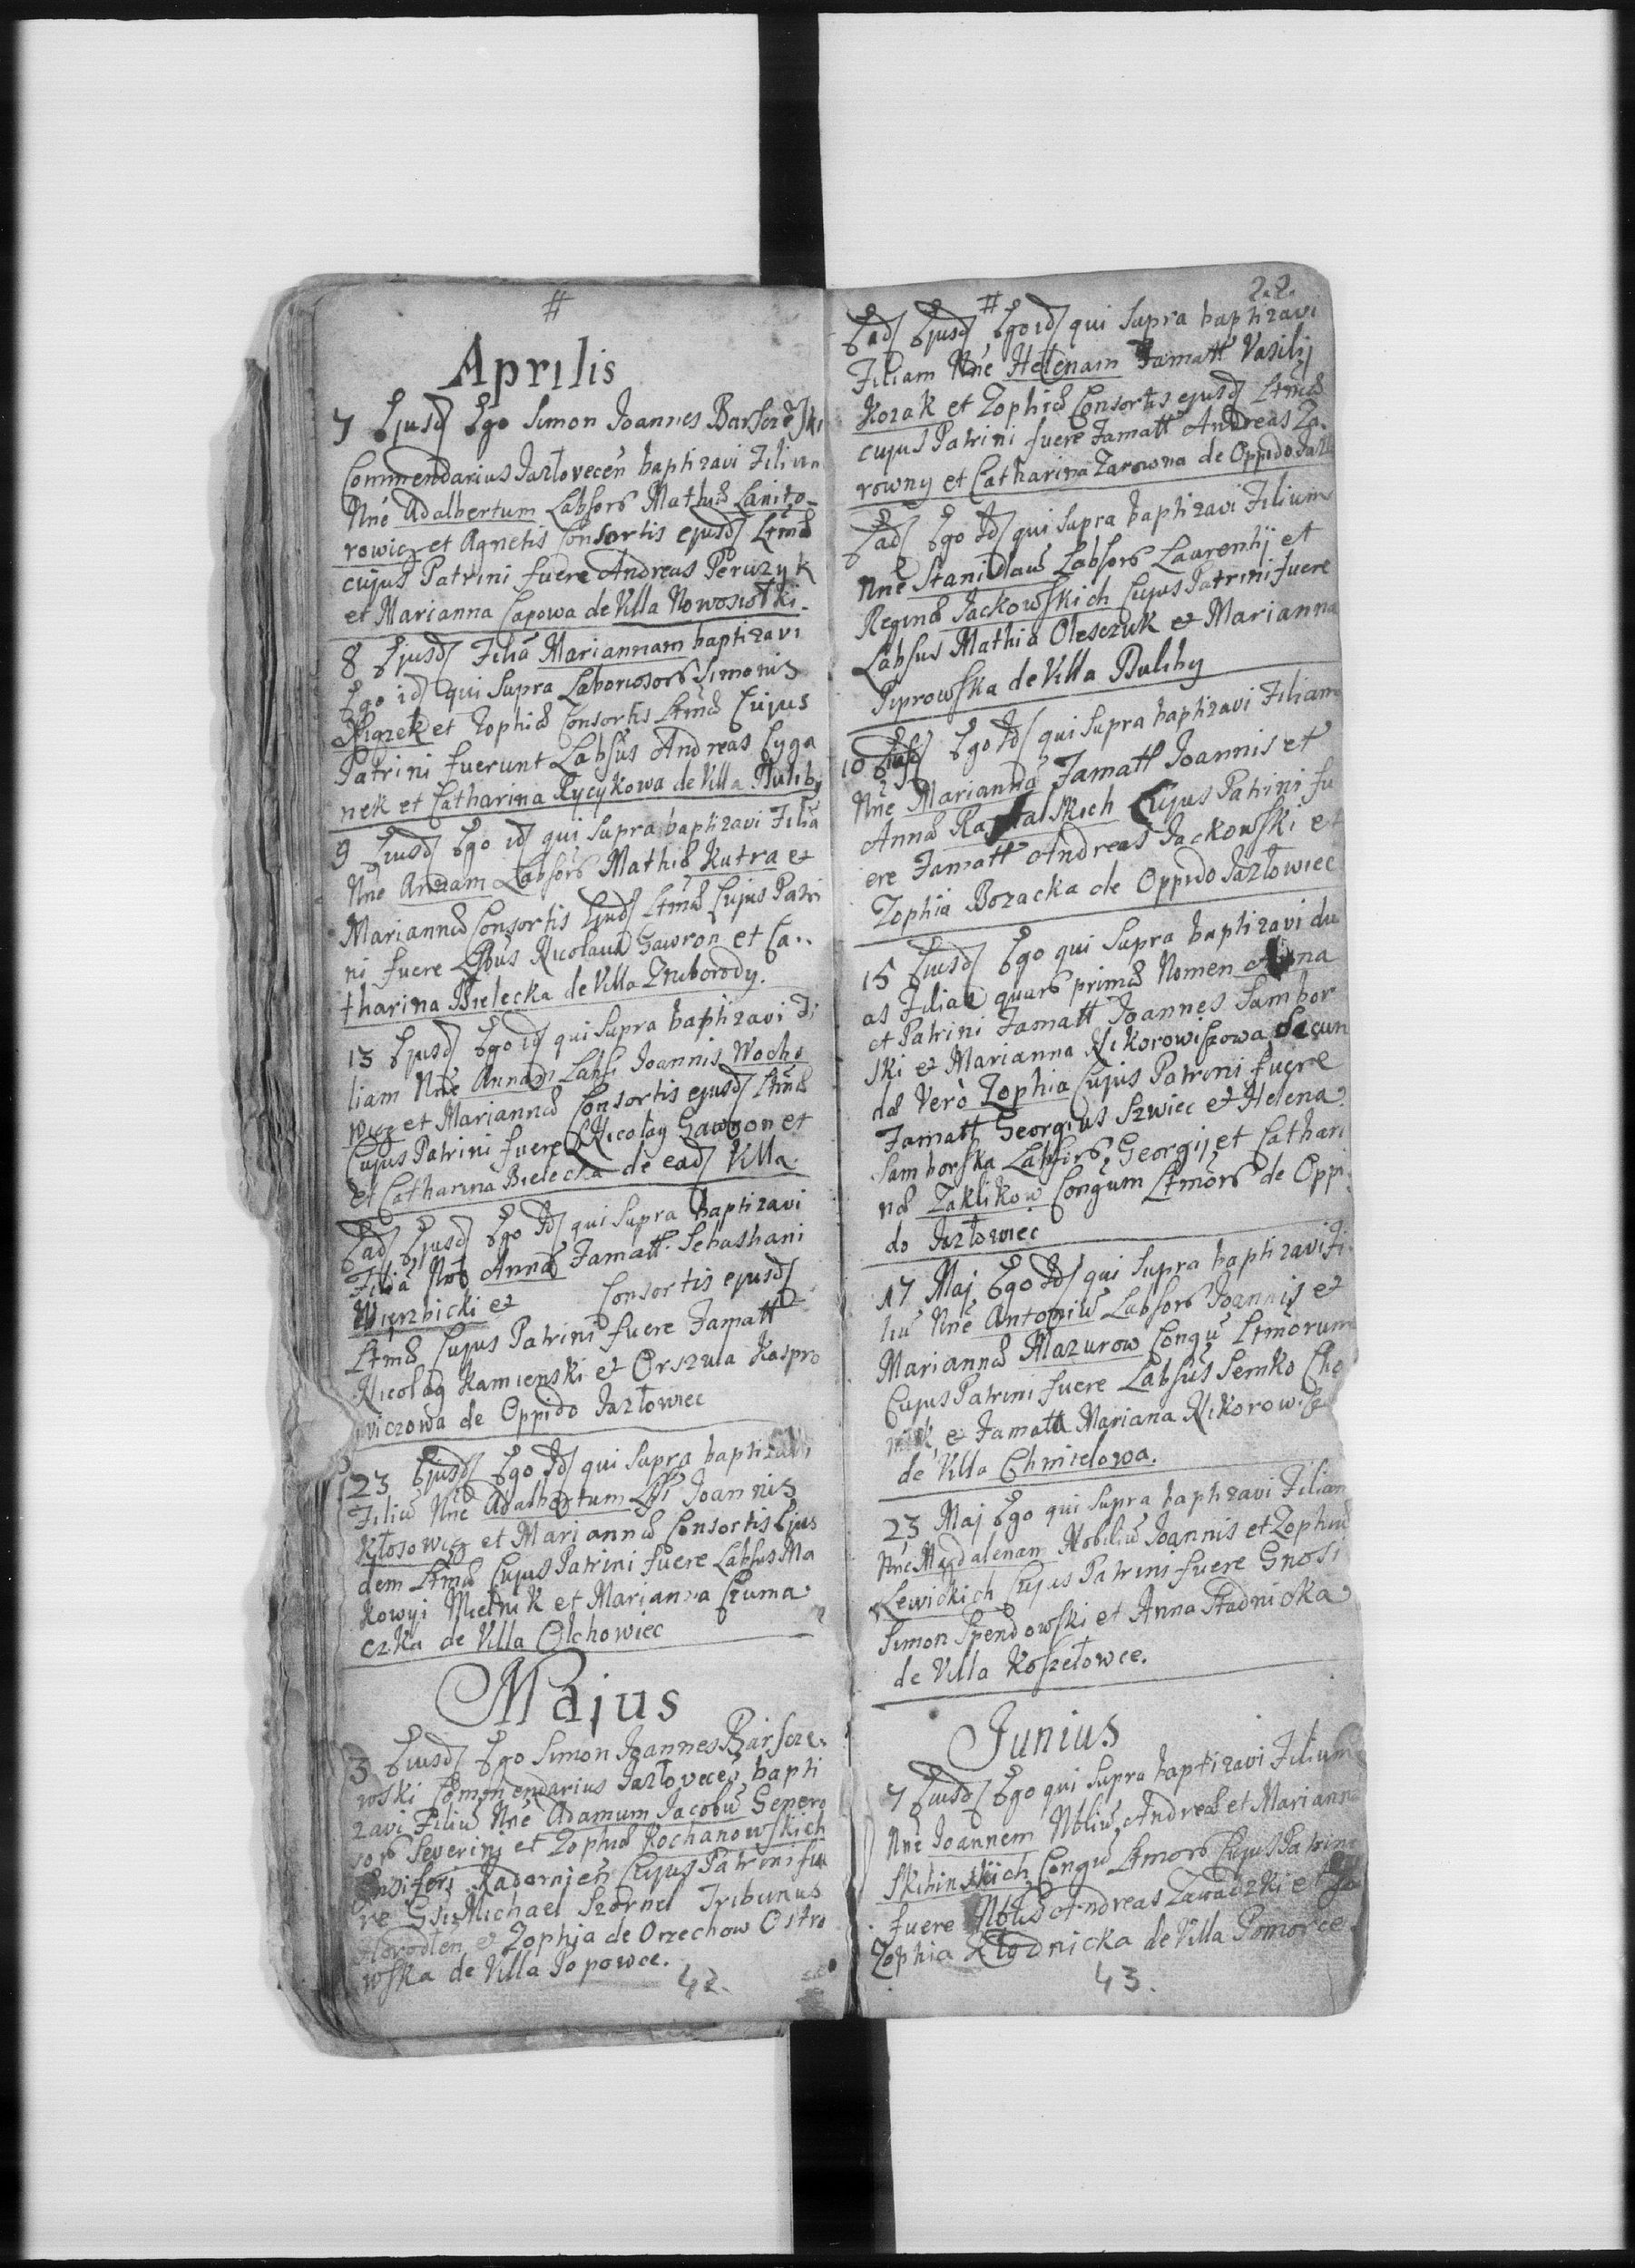 #
Aprilis
7 Ejusd Ego Simon Joannes Barszewski
Commendarius Jazłovecen baptizavi Filium
Nne Adalbertum Labsors Mathiæ Lanito
rowicz et Agnetis Consortis ejusd Ltmæ
cujus Patrini fuere Andreas Peruzyk
et Marianna Capowa de Villa Nowosiołki.
8 Ejusd Filiā Mariannam baptizavi
Ego id qui supra Laboriosors Simonis
et Zophiæ Consortis Ltmæ Cujus
Patrini fuerunt Labsus Andreas Cyga
nek et Catharina Rycykowa de Villa Buliby
9 Eiusd Ego id qui supra baptizavi Filiā
Nne Annam Labsors Mathiæ Kutra et
Mariannæ Consortis Ejusd Ltmæ Cujus Patri
ni fuere Lbus Nicolaus Gawron et Ca..
tharina Bielecka de Villa Znibrody.
13 Ejusd Ego id qui supra baptizavi Fi
liam Nne Annam Labsi Joannis Wocho
wicz et Mariannæ Consortis ejusd Ltmæ
Cujus Patrini fuere Nicolay Gawron et
et Catharina Bielecka de ead Villa.
Ead Ejusd Ego Id qui supra baptizavi
Filiā Annā Famatt. Sebastiani
Wierzbicki et Consortis ejusd
Ltmæ Cujus Patrini fuere Famatt
Nicolay Kamienski et Orszula Kaspro
wiczowa de Oppido Jazłowiec
23 Ejusd Ego Id qui supra baptizavi
Filiū Nne Adalbertum Lbsi Joannis
Kłosowicz et Mariannæ Consortis Ejus
dem Ltmæ Cujus Patrini fuere Labsus Ma
kowyi Mielnik et Marianna Czuma
czka de Villa Olchowiec
Majus
3 Eiusd Ego Simon Joannes Barszcze.
wski Commendarius Jazłovecen bapti
zavi Filiū Nne Adamum Jacobū Genero
sors Severini et Zophiæ Kochanowskich
Ensiferi Cujus Patrini fue
re Gsi Michael Szornel Tribunus
Horodłen et Zophia de Orzechow Ostro
wska de Villa Popowce.
42.
22.
#
Ead Ejusd Ego id qui supra baptizavi
Filiam Nne Helenam Famatt Vasilij
Kozak et Zophiæ Consortis ejusd Ltmæ
cujus Patrini fuere Famatt Andreas Za.
rowny et Catharina Zarowna de Oppido Jazło
Ead Ego Id qui supra baptizavi Filium
Nne Stanislaū Labsors Laurentij et
Reginæ Jackowskich Cujus Patrini fuere
Labsus Mathia Olesczuk et Marianna
Piprowska de Villa Buliby
10 Eiusd Ego Id qui supra baptizavi Filiam
Nne Mariannā Famatt Joannis et
Annæ Cujus Patrini fu
ere Famatt Andreas Jackowski et
Zophia Bozacka de Oppido Jazłowiec
15 Eiusd Ego qui supra baptizavi du
as Filias quars primæ Nomen Anna
et Patrini Famatt Joannes Sambor
ski et Marianna Nikorowiczowa Secun
dæ Verò Zophia Cujus Patrini fuere
Famatt Georgius Szwiec et Helena
Samborska Labsors Georgij et Cathari
næ Zaklikow Congum Ltmors de Oppi
do Jazłowiec
17 Maj Ego Id qui supra baptizavi Fi
liū Nne Antoniū Labsors Joannis et
Mariannæ Mazurow Congū Ltmorum
Cujus Patrini fuere Labsus Semko Cho
et Famatta Mariana Nikorowicz
de Villa Chmielowa.
23 Maj Ego qui supra baptizavi Filiam
Nne Magdalenam Nobiliū Joannis et Zophiæ
Lewickich Cujus Patrini fuere Gnosi
Simon Spendowski et Anna Stadnicka
de Villa Koszełowce.
Junius
7 Eiusd Ego qui supra baptizavi Filium
Nne Joannem Nbliū Andreæ et Marianna
Skibinskich Congū Ltmors Cujus Patrini
fuere Nblis Andreas Zawadzki et
Zophia Kłodnicka de Villa Pomorce
43.